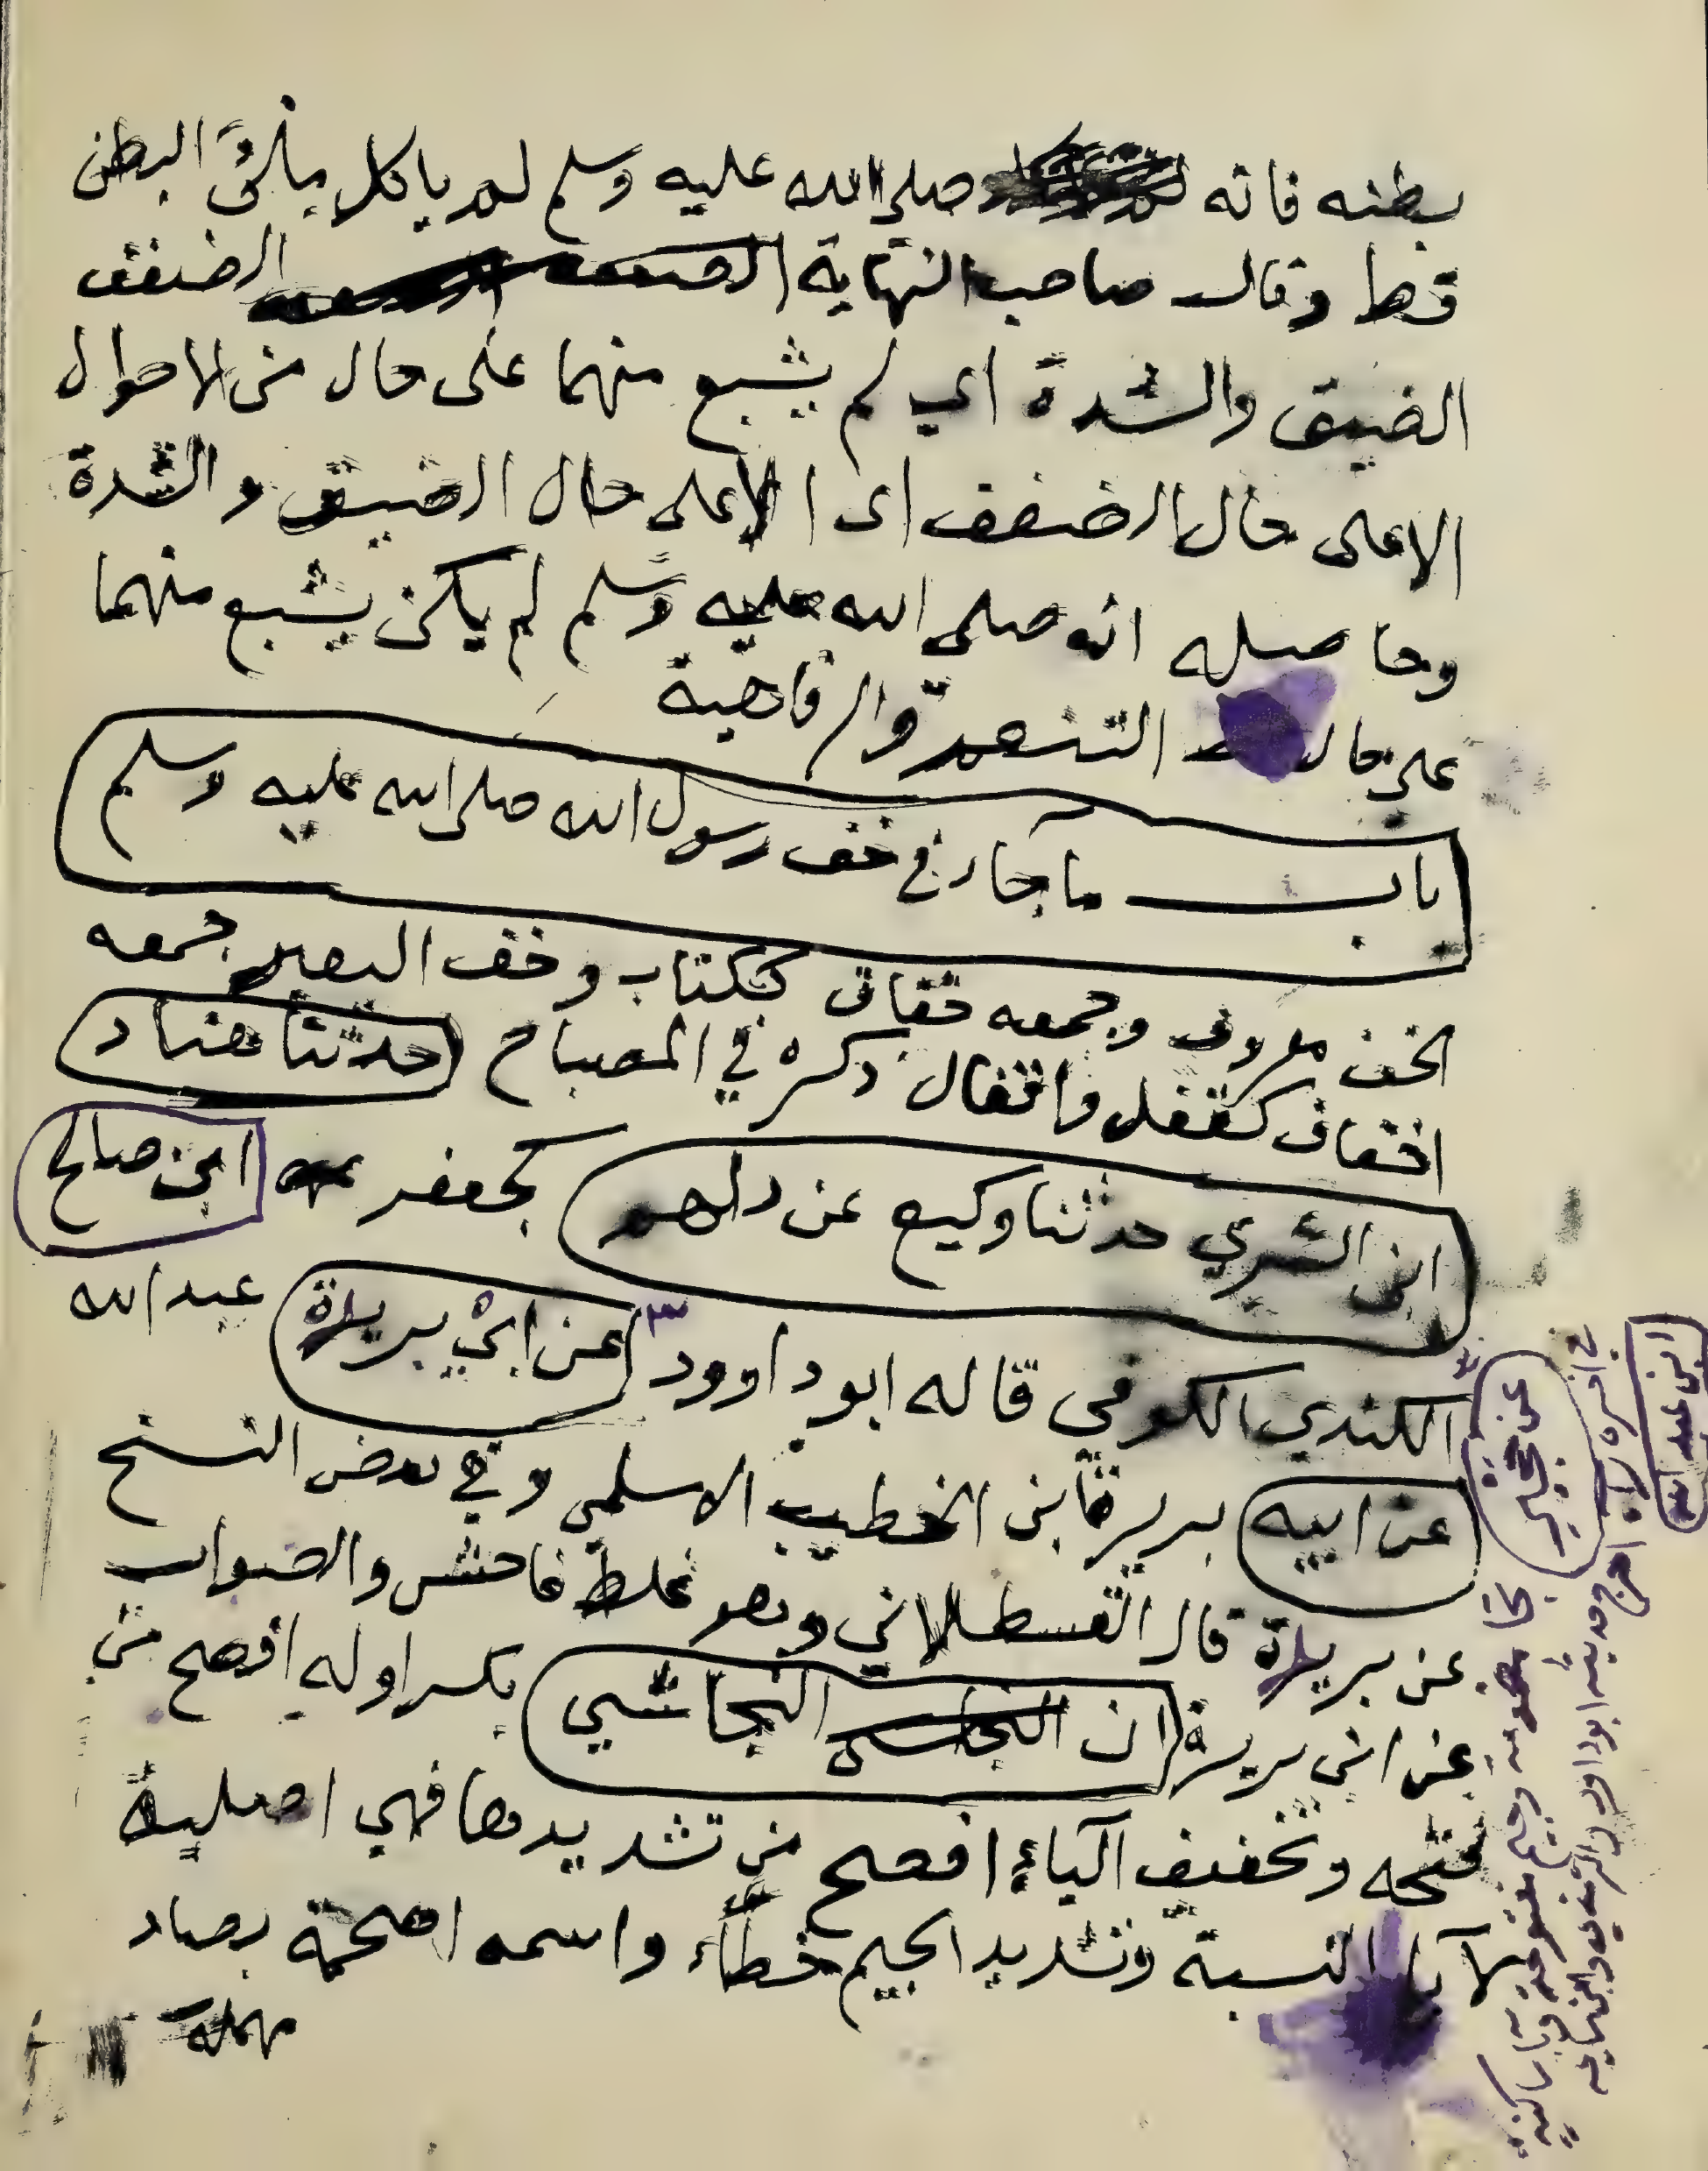 بطنه فانه صلى الله عليه وسلم لم ياكل ملئ البطن
قط وقال صاحب النهاية الضفف
الضيق والشدة اي لم يشبع منهما على حال من الاحوال
الا على حال الضفف اى الا على حال الضيق والشدة
وحاصله انه صلى الله عليه وسلم لم يكن يشبع منهما
على حال التنعم والرفاهية
باب ما جآء في خف رسول الله صلى الله عليه وسلم
الخف معروف وجمعه خفاف ككتاب وخف البعير جمعه
اخفاف كقفل واقفال ذكره في المصباح حدثنا هناد
ابن السري حدثنا وكيع عن دلهم كجعفر ابن صالح
الكندي الكوفي قاله ابو داوود عن ابن بريدة عبد الله
عن ابيه بريدة ابن الخطيب الاسلمي وفي بعض النسخ
عن بريدة قال القسطلاني وهو غلط فاحش والصواب
عن ابي بريدة ان النجاشي بكسر اوله افصح من
فتحه وتخفيف الياء افصح من تشديدها فهي اصلية
لا يا النسبة وتشديد الجيم خطأ واسمه اصحمة بصاد
مهملة
عن حجير
بحا مضمومه وجيم مفتوحة ويا ساكنة
في اخره راء اخرج حديثه ابو داود والترمذي وابن ماجه
ابن عبد الله